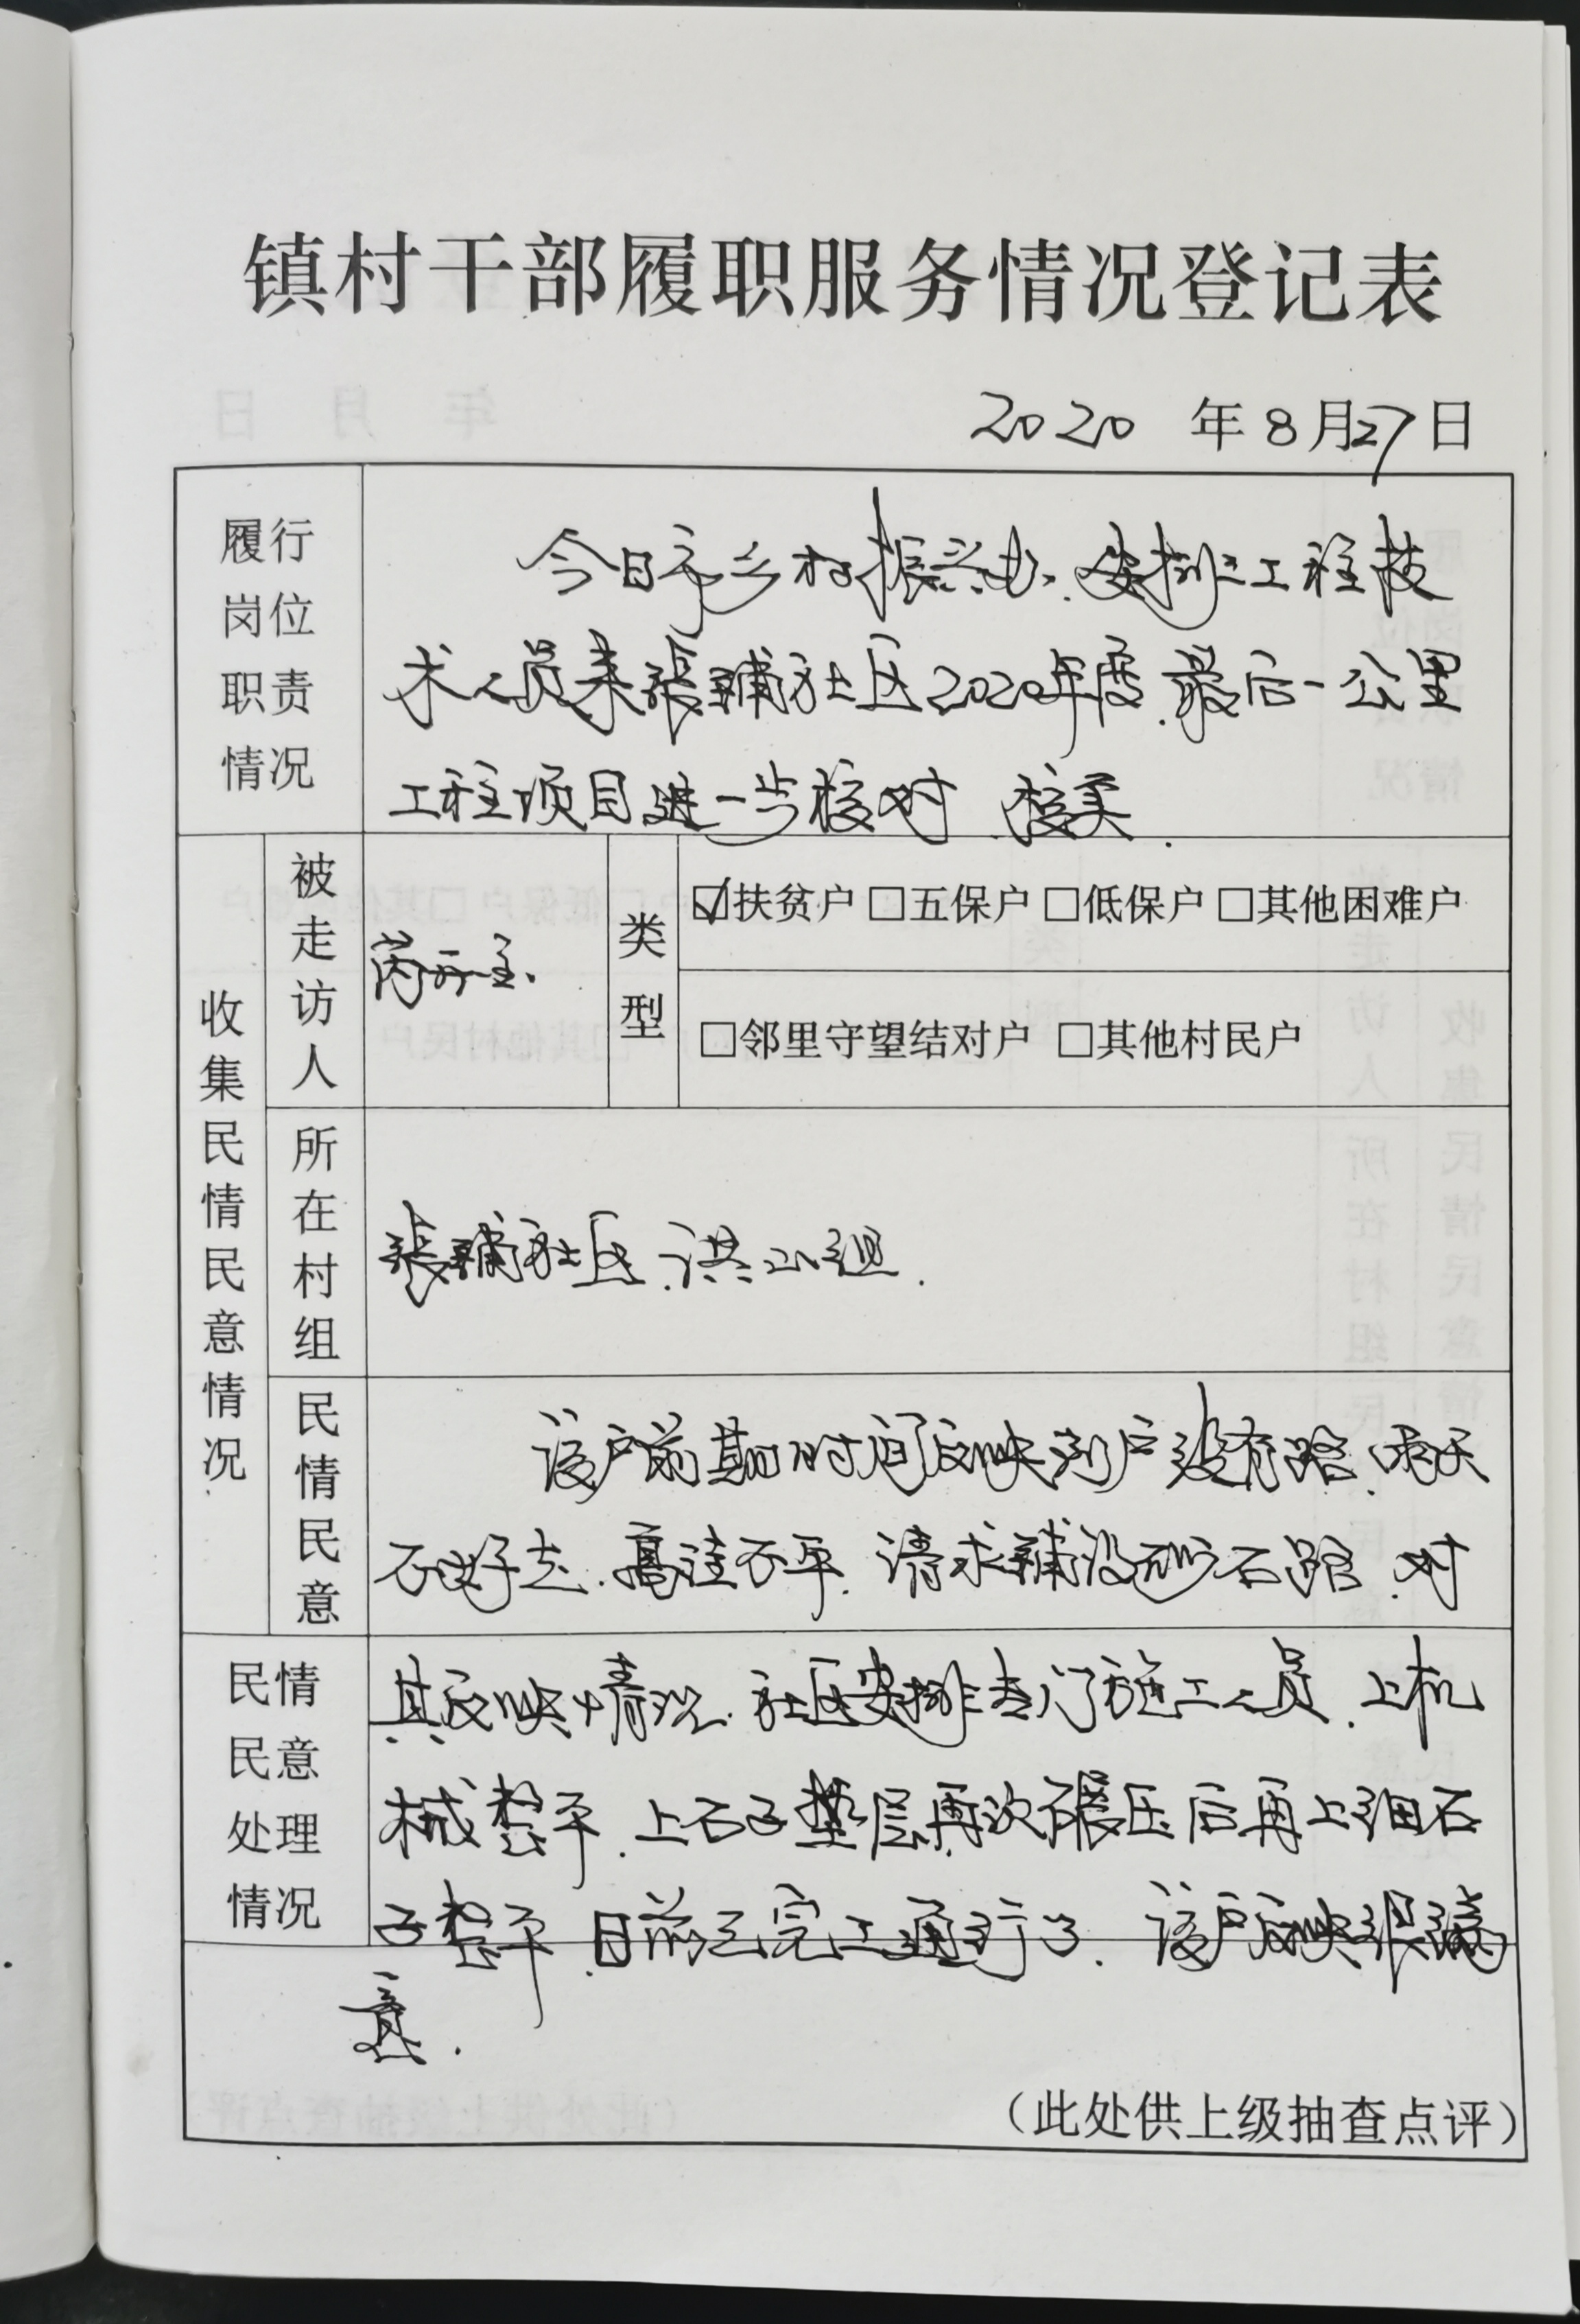 镇村干部履职服务情况登记表
2020 年 8 月 27 日
履行
岗位
职责
情况
今日市乡村振兴办.安排工程技
术人员来張铺社区2020年度.最后一公里
工程项目进一步核对.核实.
收集民情民意情况
被走访人
类型
☑扶贫户 □五保户 □低保户 □其他困难户
□邻里守望结对户 □其他村民户
所在村组
張铺社区.洪小组.
民情民意
该户前期时间反映到户没有路.雨天
不好走.高洼不平.请求铺设砂石路.对
民情
民意
处理
情况
其反映情况.社区安排专门施工人员.上机
械整平.上石子垫层再次碾压后再上细石
子整平.目前已完工通行了.该户反映很满
意.
(此处供上级抽查点评)